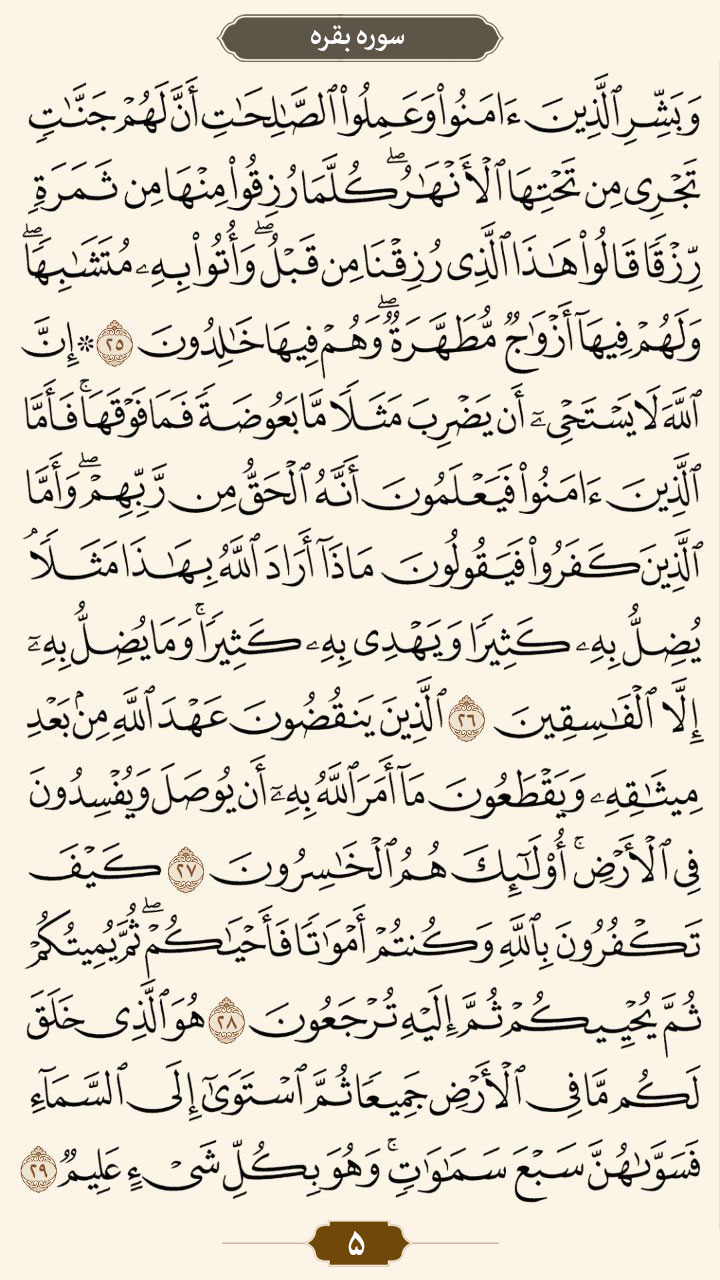 سوره بقره
وَبَشِّرِ ٱلَّذِينَ ءَامَنُوا۟ وَعَمِلُوا۟ ٱلصَّٰلِحَٰتِ أَنَّ لَهُمْ جَنَّٰتٍ
تَجْرِى مِن تَحْتِهَا ٱلْأَنْهَٰرُ ۖ كُلَّمَا رُزِقُوا۟ مِنْهَا مِن ثَمَرَةٍ
رِّزْقًا قَالُوا۟ هَٰذَا ٱلَّذِى رُزِقْنَا مِن قَبْلُ ۖ وَأُتُوا۟ بِهِۦ مُتَشَٰبِهًا ۖ
وَلَهُمْ فِيهَآ أَزْوَٰجٌ مُّطَهَّرَةٌ ۖ وَهُمْ فِيهَا خَٰلِدُونَ ٢٥ ۞ إِنَّ
ٱللَّهَ لَا يَسْتَحْىِۦٓ أَن يَضْرِبَ مَثَلًا مَّا بَعُوضَةً فَمَا فَوْقَهَا ۚ فَأَمَّا
ٱلَّذِينَ ءَامَنُوا۟ فَيَعْلَمُونَ أَنَّهُ ٱلْحَقُّ مِن رَّبِّهِمْ ۖ وَأَمَّا
ٱلَّذِينَ كَفَرُوا۟ فَيَقُولُونَ مَاذَآ أَرَادَ ٱللَّهُ بِهَٰذَا مَثَلًا ۘ
يُضِلُّ بِهِۦ كَثِيرًا وَيَهْدِى بِهِۦ كَثِيرًا ۚ وَمَا يُضِلُّ بِهِۦٓ
إِلَّا ٱلْفَٰسِقِينَ ٢٦ ٱلَّذِينَ يَنقُضُونَ عَهْدَ ٱللَّهِ مِنۢ بَعْدِ
مِيثَٰقِهِۦ وَيَقْطَعُونَ مَآ أَمَرَ ٱللَّهُ بِهِۦٓ أَن يُوصَلَ وَيُفْسِدُونَ
فِى ٱلْأَرْضِ ۚ أُو۟لَٰٓئِكَ هُمُ ٱلْخَٰسِرُونَ ٢٧ كَيْفَ
تَكْفُرُونَ بِٱللَّهِ وَكُنتُمْ أَمْوَٰتًا فَأَحْيَٰكُمْ ۖ ثُمَّ يُمِيتُكُمْ
ثُمَّ يُحْيِيكُمْ ثُمَّ إِلَيْهِ تُرْجَعُونَ ٢٨ هُوَ ٱلَّذِى خَلَقَ
لَكُم مَّا فِى ٱلْأَرْضِ جَمِيعًا ثُمَّ ٱسْتَوَىٰٓ إِلَى ٱلسَّمَآءِ
فَسَوَّىٰهُنَّ سَبْعَ سَمَٰوَٰتٍ ۚ وَهُوَ بِكُلِّ شَىْءٍ عَلِيمٌ ٢٩
۵